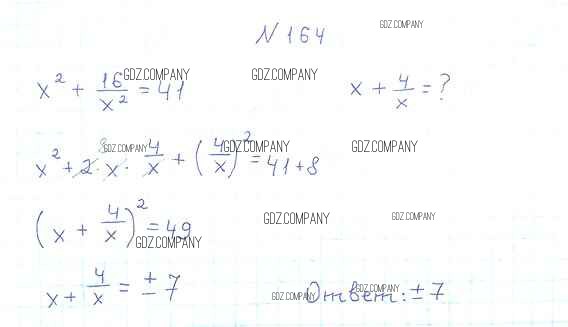 № 164
GDZ.COMPANY
x² + 16/x² = 41 x + 4/x = ?
GDZ.COMPANY GDZ.COMPANY
x² + 2 · x · 4/x + (4/x)² = 41 + 8
8
GDZ.COMPANY GDZ.COMPANY GDZ.COMPANY
(x + 4/x)² = 49
GDZ.COMPANY GDZ.COMPANY
GDZ.COMPANY
x + 4/x = ± 7 Ответ: ± 7
GDZ.COMPANY GDZ.COMPANY